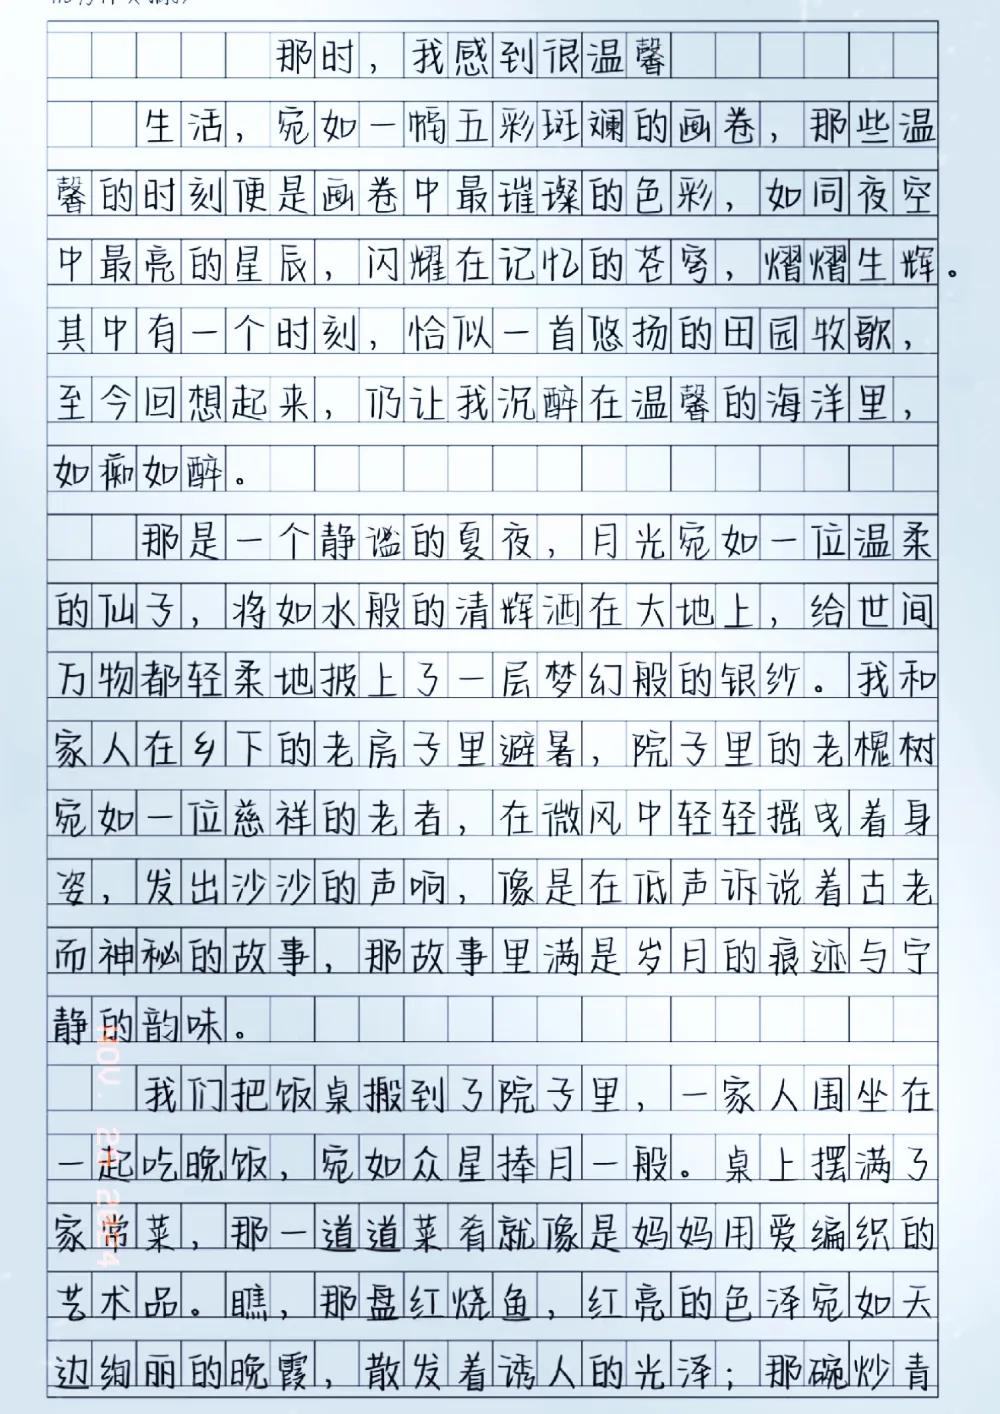 那时，我感到很温馨
生活，宛如一幅五彩斑斓的画卷，那些温
馨的时刻便是画卷中最璀璨的色彩，如同夜空
中最亮的星辰，闪耀在记忆的苍穹，熠熠生辉。
其中有一个时刻，恰似一首悠扬的田园牧歌，
至今回想起来，仍让我沉醉在温馨的海洋里，
如痴如醉。
那是一个静谧的夏夜，月光宛如一位温柔
的仙子，将如水般的清辉洒在大地上，给世间
万物都轻柔地披上了一层梦幻般的银纱。我和
家人在乡下的老房子里避暑，院子里的老槐树
宛如一位慈祥的老者，在微风中轻轻摇曳着身
姿，发出沙沙的声响，像是在低声诉说着古老
而神秘的故事，那故事里满是岁月的痕迹与宁
静的韵味。
我们把饭桌搬到了院子里，一家人围坐在
一起吃晚饭，宛如众星捧月一般。桌上摆满了
家常菜，那一道道菜肴就像是妈妈用爱编织的
艺术品。瞧，那盘红烧鱼，红亮的色泽宛如天
边绚丽的晚霞，散发着诱人的光泽；那碗炒青
NOV. 2024